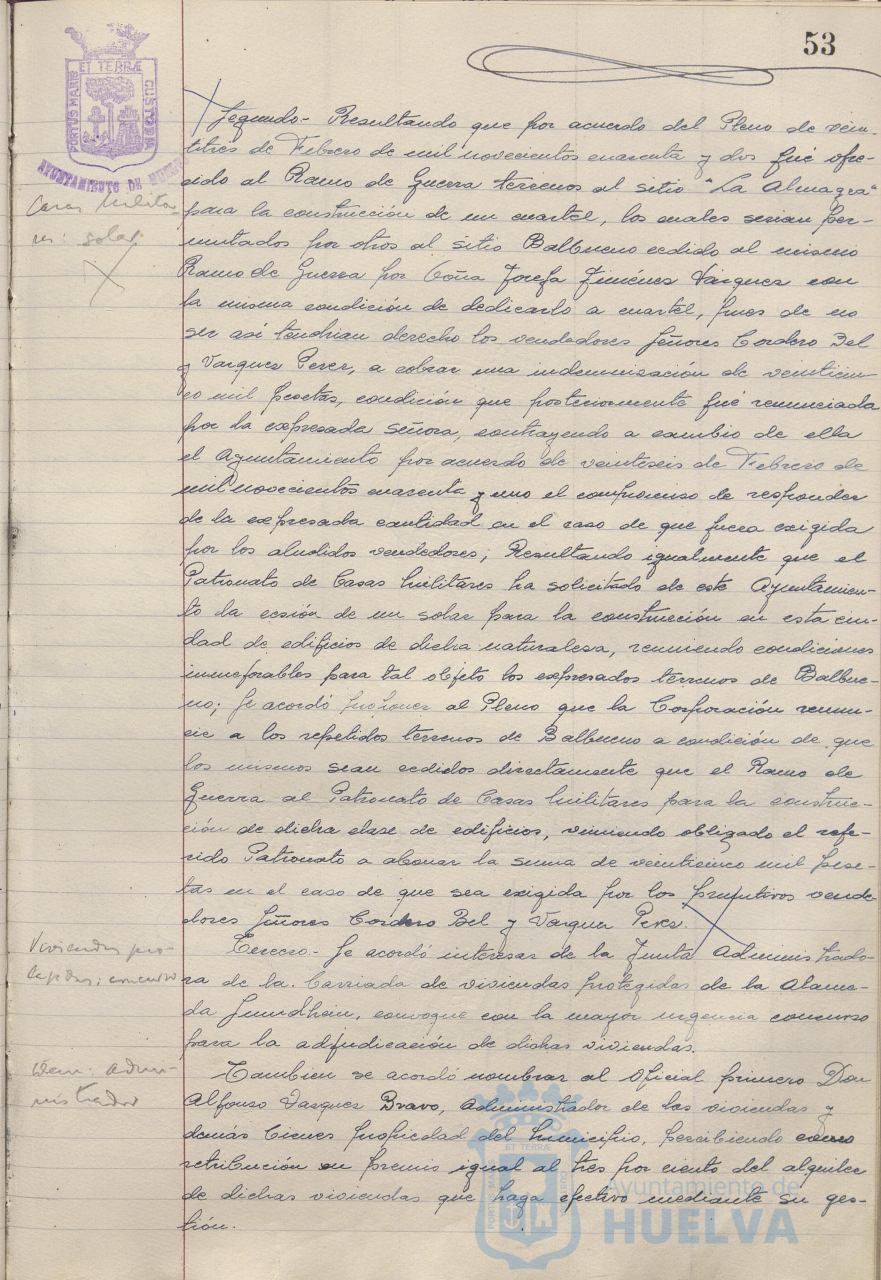 53
ET TERRÆ
PORTUS MARIS
CUSTODIA
AYUNTAMIENTO DE HUELVA
Segundo- Resultando que por acuerdo del Pleno de vein-
titres de Febrero de mil novecientos cuarenta y dos fué ofre-
cido al Ramo de Guerra terrenos al sitio "La Almagra"
Casas Milita-
para la construcción de un cuartel, los cuales serian per-
res: solar
mutados por otros al sitio Balbueno cedido al mismo
Ramo de Guerra por Doña Josefa Jiménez Vázquez con
la misma condición de dedicarlo a cuartel, pues de no
ser asi tendrian derecho los vendedores Señores Cordero Bel
y Vazquez Perez, a cobrar una indemnización de veinticin-
co mil pesetas, condición que posteriormente fué renunciada
por la expresada señora, contrayendo a cambio de ella
el Ayuntamiento por acuerdo de veinteseis de Febrero de
mil novecientos cuarenta y uno el compromiso de responder
de la expresada cantidad en el caso de que fuera exigida
por los aludidos vendedores; Resultando igualmente que el
Patronato de Casas Militares ha solicitado de este Ayuntamien-
to la cesión de un solar para la construcción en esta ciu-
dad de edificios de dicha naturaleza, reuniendo condiciones
inmejorables para tal objeto los expresados terrenos de Balbue-
no; Se acordó proponer al Pleno que la Corporación renun-
cie a los repetidos terrenos de Balbueno a condición de que
los mismos sean cedidos directamente que el Ramo de
Guerra al Patronato de Casas Militares para la construc-
ción de dicha clase de edificios, viniendo obligado el refe-
rido Patronato a abonar la suma de veinticinco mil pese-
tas en el caso de que sea exigida por los primitivos vende-
dores Señores Cordero Bel y Vazquez Perez.
Viviendas pro-
Tercero.- Se acordó interesar de la Junta Administrado-
tegidas: concurso
ra de la Barriada de viviendas protegidas de la Alame-
da Sundheim, convoque con la mayor urgencia concurso
para la adjudicación de dichas viviendas.
Idem: Admi-
Tambien se acordó nombrar al Oficial primero Don
nistrador
Alfonso Vazquez Bravo, Administrador de las viviendas y
demás bienes propiedad del Municipio, percibiendo como
retribución un premio igual al tres por ciento del alquiler
de dichas viviendas que haga efectivo mediante su ges-
tión.
ET TERRÆ
PORTUS MARIS
CUSTODIA
Ayuntamiento de
HUELVA